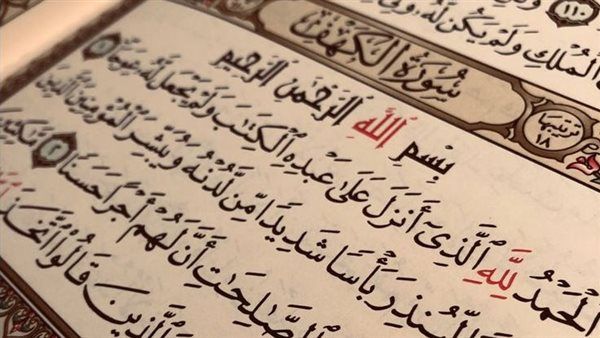 ١١٠
ٱلْمُلْكِ وَلَمْ يَكُن لَّهُۥ
سُورَةُ الكَهْفِ
ترتيبها ١٨
بِسْمِ ٱللَّهِ ٱلرَّحْمَٰنِ ٱلرَّحِيمِ
ٱلْحَمْدُ لِلَّهِ ٱلَّذِىٓ أَنزَلَ عَلَىٰ عَبْدِهِ ٱلْكِتَٰبَ وَلَمْ يَجْعَل لَّهُۥ عِوَجَا ١
لِّيُنذِرَ بَأْسًا شَدِيدًا مِّن لَّدُنْهُ وَيُبَشِّرَ ٱلْمُؤْمِنِينَ ٱلَّذِينَ
ٱلصَّٰلِحَٰتِ أَنَّ لَهُمْ أَجْرًا حَسَنًا ٢ مَّٰكِثِينَ
ٱلَّذِينَ قَالُوا۟ ٱتَّخَذَ